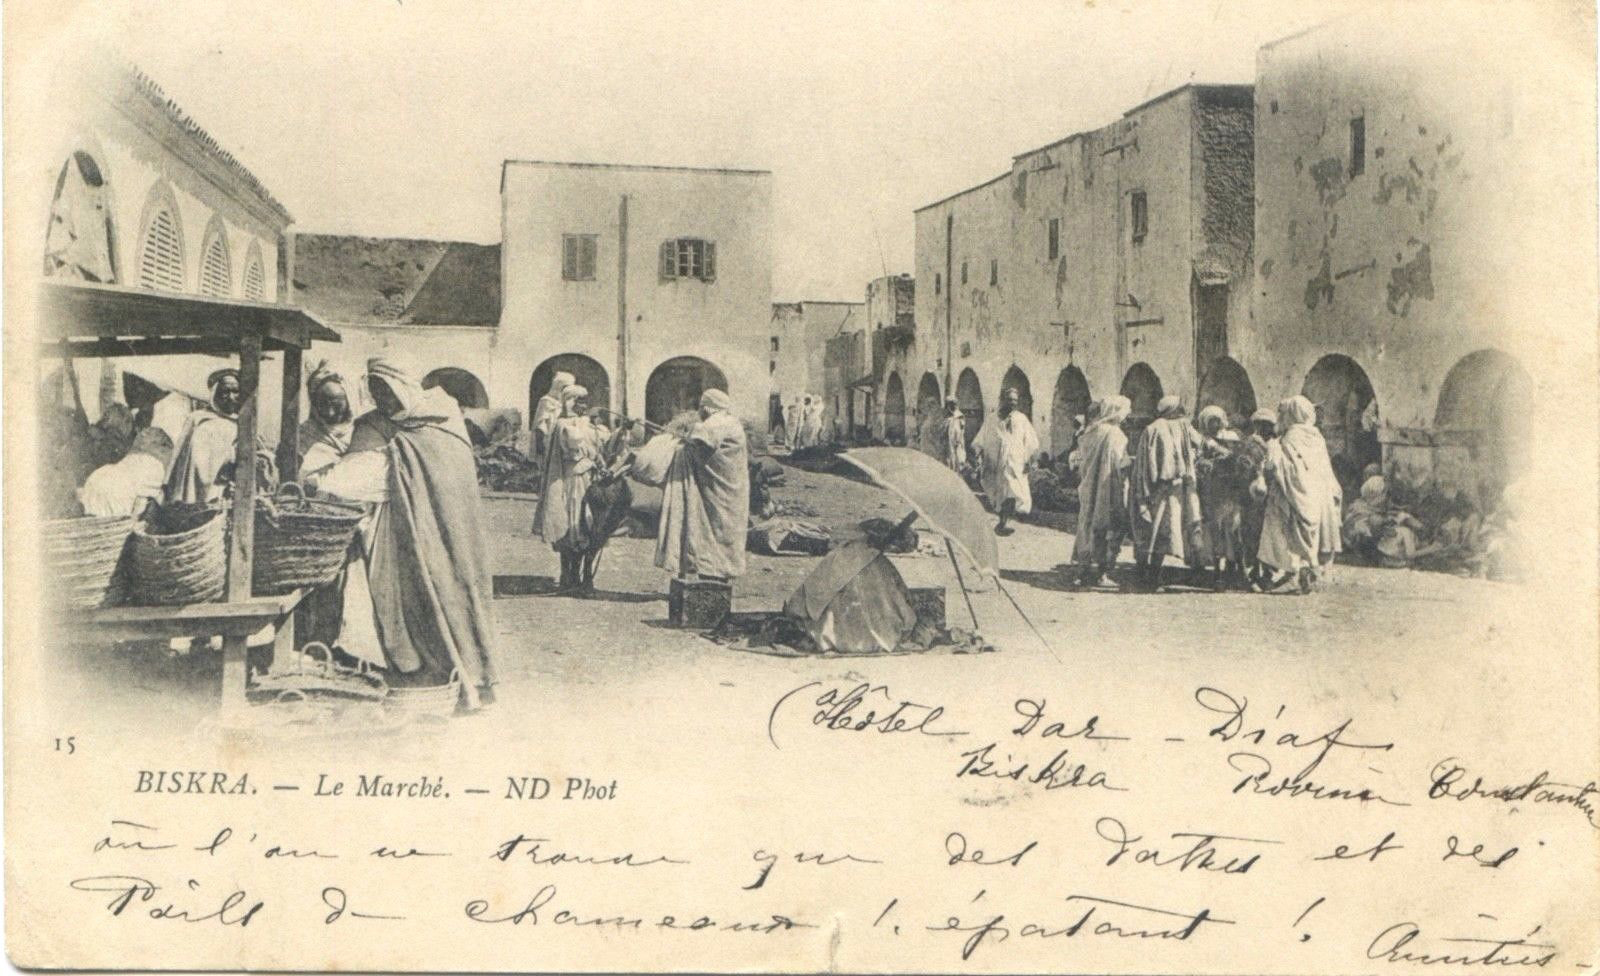 (Hôtel Dar-Diaf.
Biskra Province Constantine
15
BISKRA. — Le Marché. — ND Phot
où l'on ne trouve que des dattes et des
Poils de chameaux ! épatant !
Amitiés -